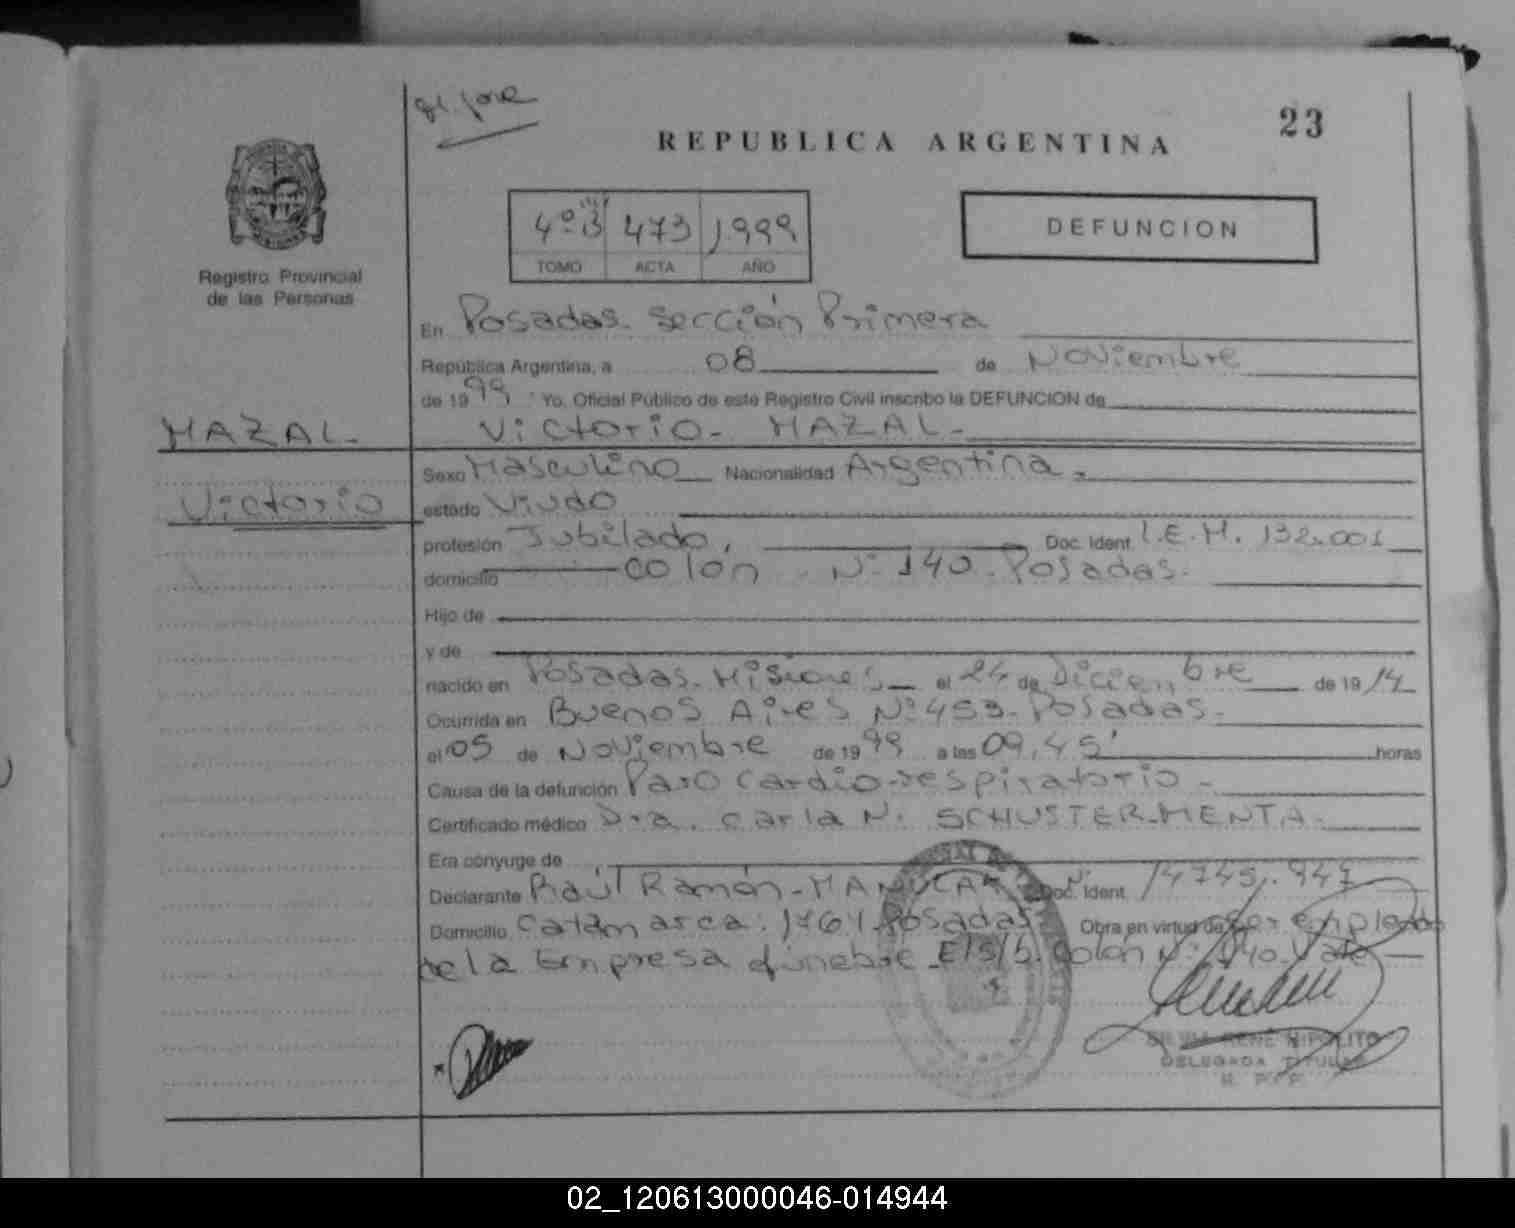 REPUBLICA ARGENTINA
23
Registro Provincial
de las Personas
4º B 473 1999
TOMO ACTA AÑO
DEFUNCION
En Posadas. Sección Primera
República Argentina, a 08 de Noviembre
de 1999 Yo, Oficial Público de este Registro Civil inscribo la DEFUNCION de
MAZAL- Victorio- MAZAL-
Sexo Masculino Nacionalidad Argentina.
Victorio estado Viudo
profesión Jubilado, Doc. Ident. L.E.M. 132.001
domicilio Colón Nº 140. Posadas.
Hijo de
y de
nacido en Posadas. Misiones el 24 de Diciembre de 1914
Ocurrida en Buenos Aires Nº 453- Posadas-
el 05 de Noviembre de 1999 a las 09,45' horas
Causa de la defunción Paro Cardio-respiratorio-
Certificado médico Dra. Carla N. SCHUSTER-MENTA.
Era cónyuge de
Declarante Raúl Ramón- Doc. Ident. 14745.947
Domicilio Catamarca: 1761 Posadas Obra en virtud de ser empleado
de la Empresa fúnebre E/S/b. Colón Nº 140. Vale
RENÉ HIPOLITO
DELEGADA TITULAR
R. P. P.
02_120613000046-014944